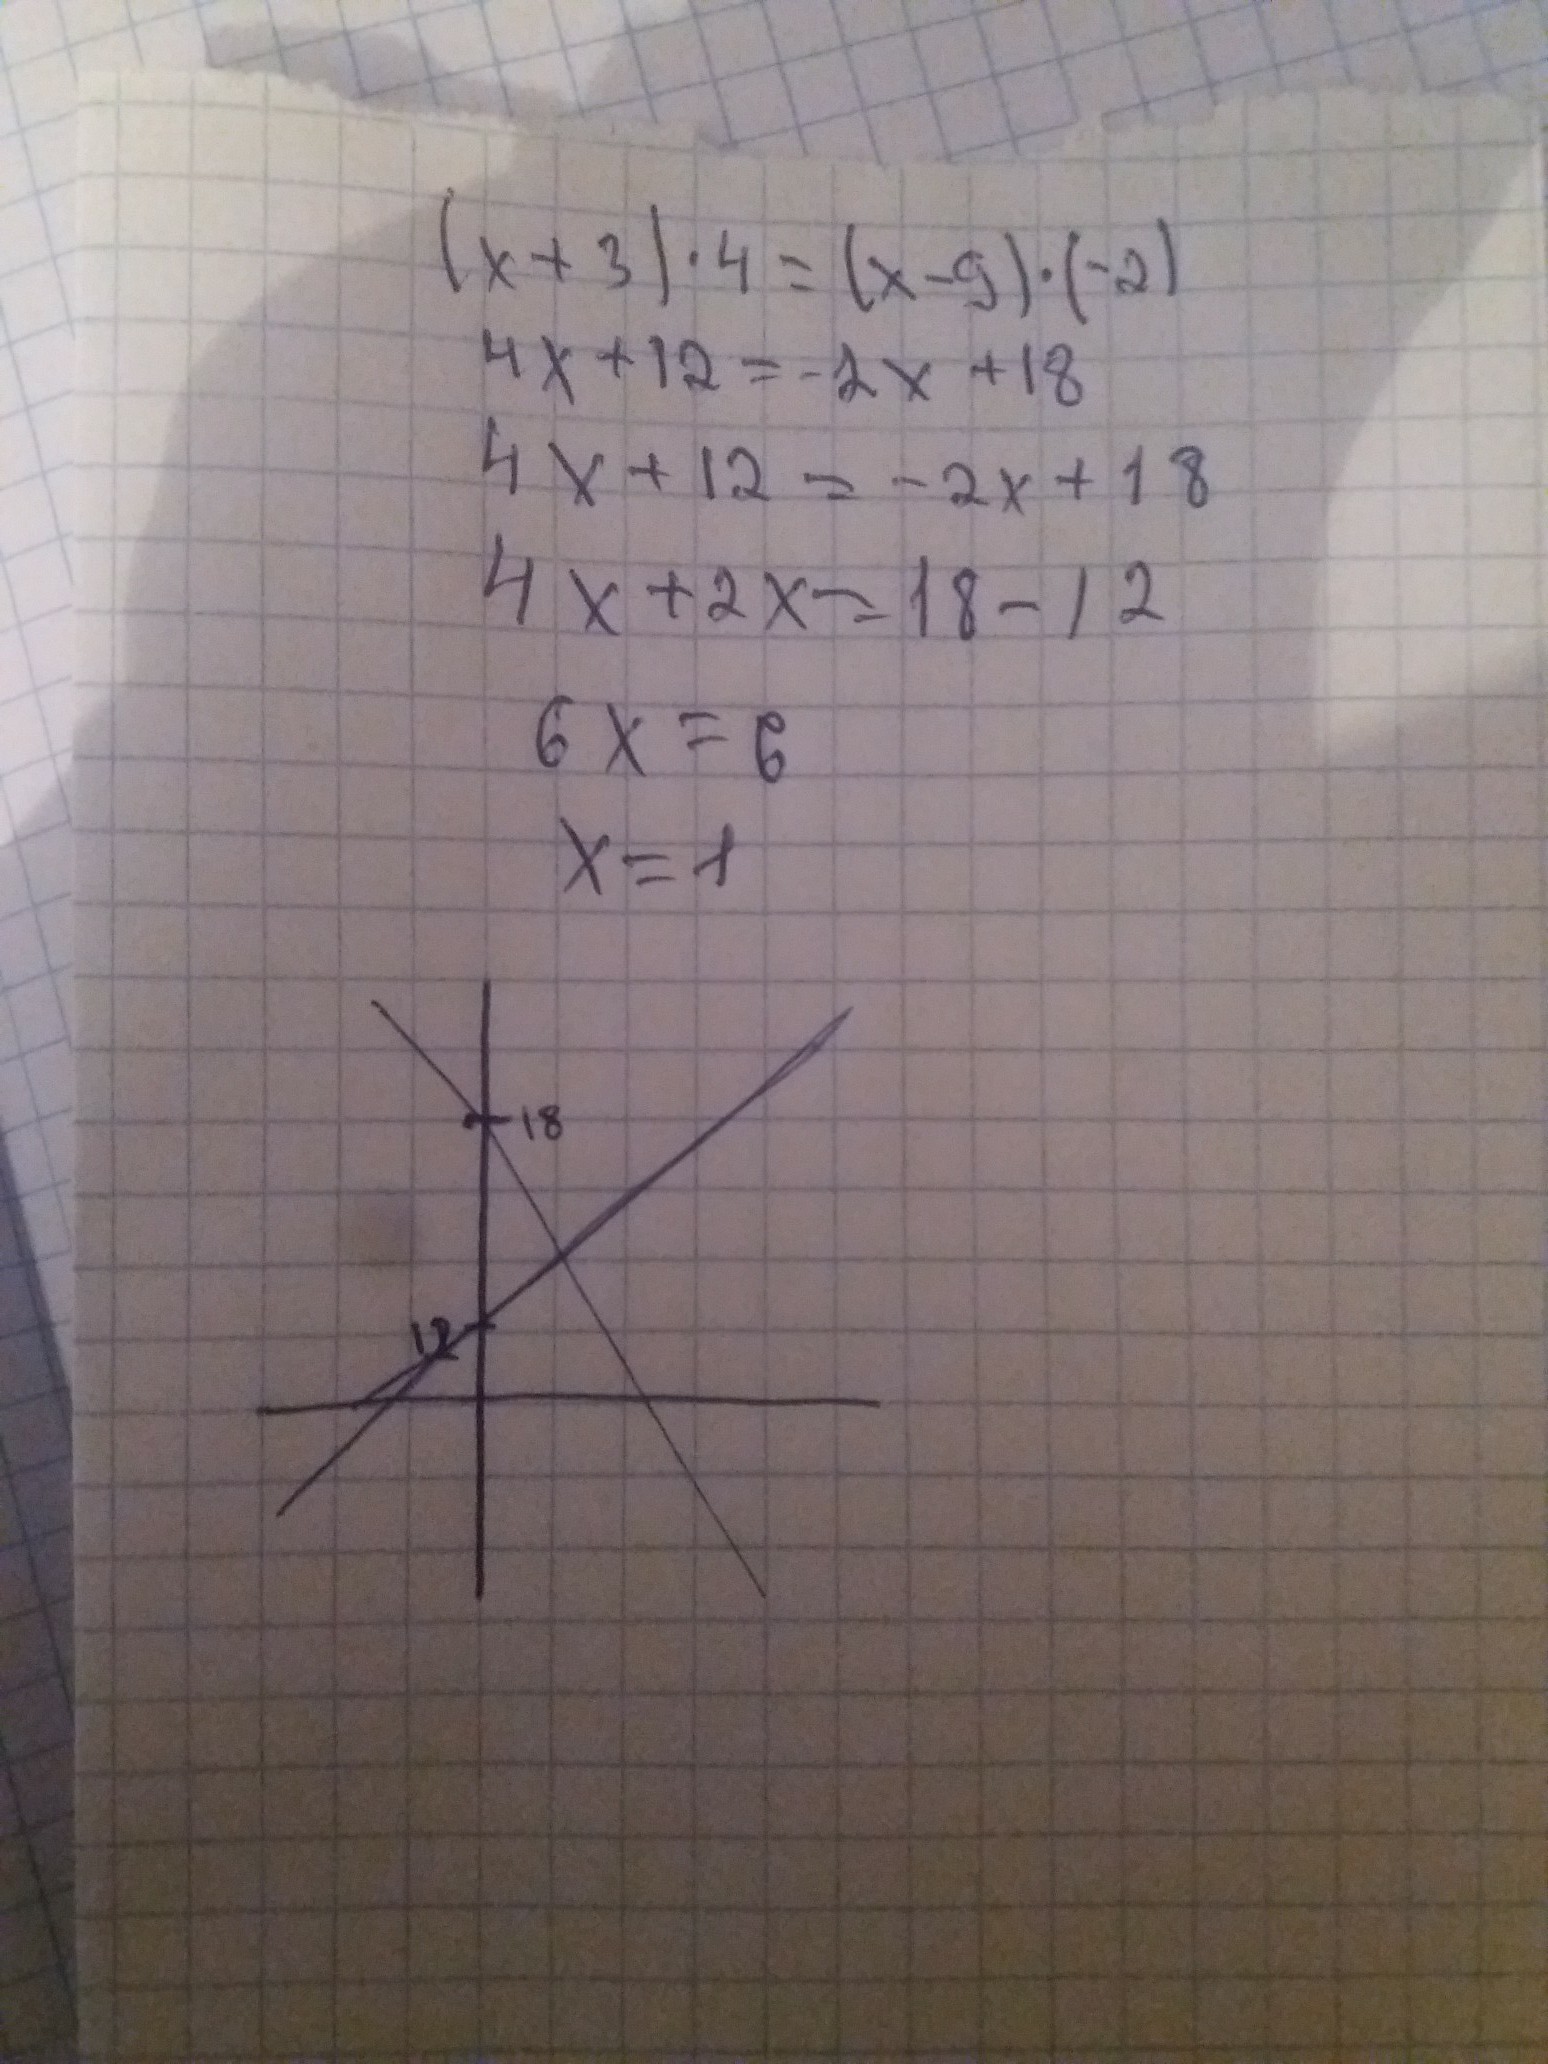 (x+3)·4=(x-9)·(-2)
4x+12=-2x+18
4x+12=-2x+18
4x+2x=18-12
6x=6
x=1
18
12